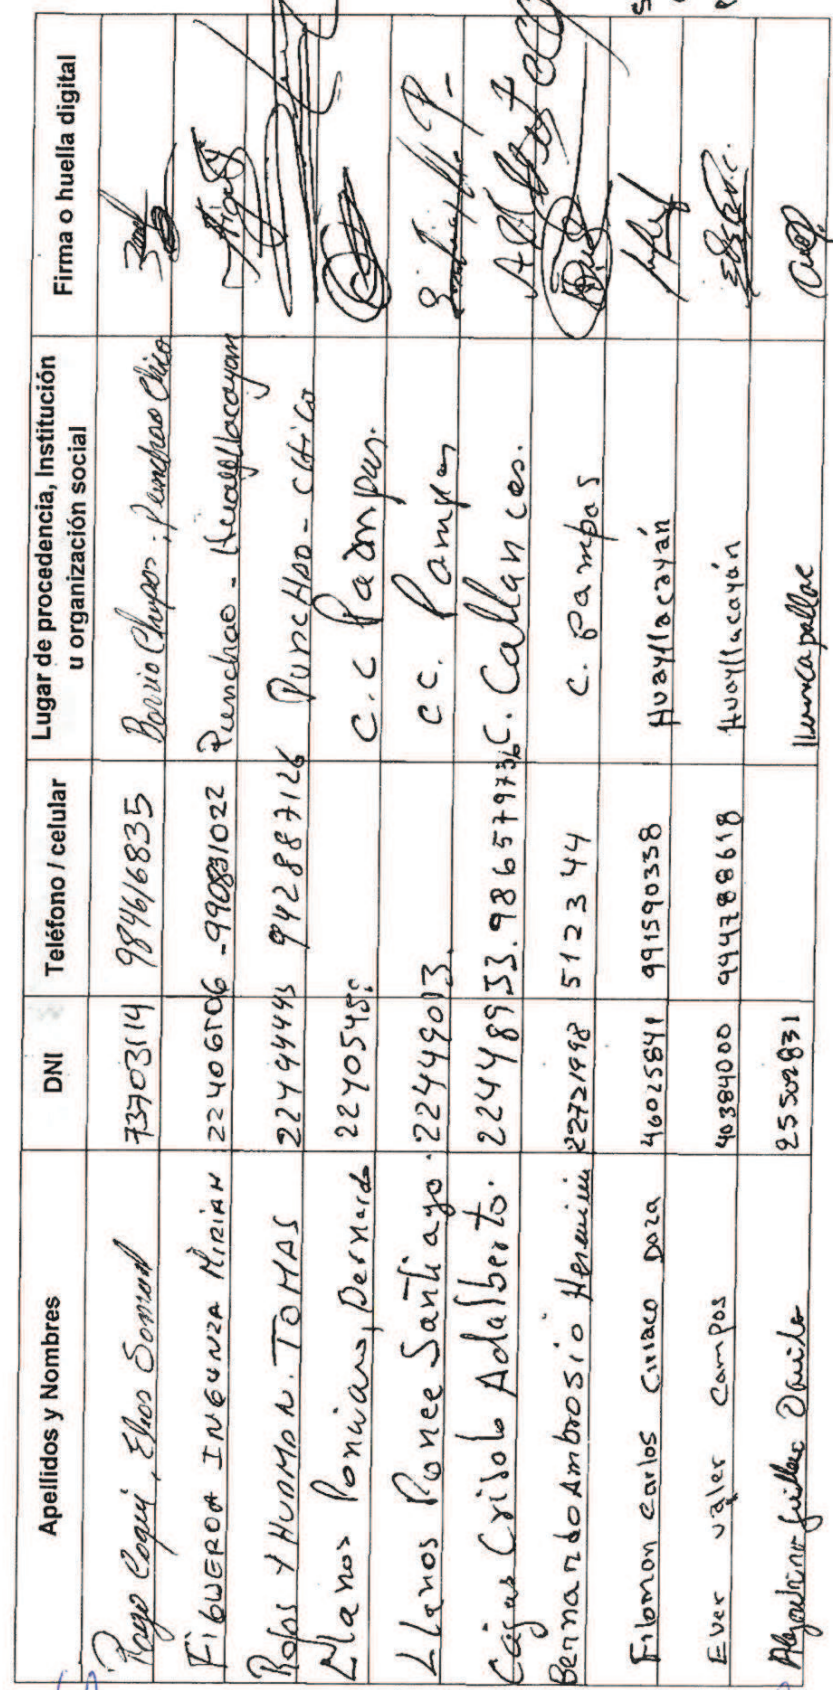 Apellidos y Nombres DNI Teléfono / celular Lugar de procedencia, Institución u organización social Firma o huella digital
Rayo Coqui, 73703114 984616835 Barrio Chupas: Punchao Chico
FIGUEROA INGUNZA MIRIAN 22406506 - 990831022 Punchao - Huayllacayan
Rojas y HUAMAN. TOMAS 22494443 942887126 PUNCHAO - CHICO
Llanos Ponciano, Bernardo 2240545 C.C Pampas.
Llanos Ponce Santiago. 22449013. CC. Pampas
Cajas Crisolo Adalberto. 22448953. 986579736 C. Callancas.
Bernardo Ambrosio Herminio 22721998 512344 C. Pampas
Filomon Carlos Ciriaco Doza 46025841 991590338 Huayllacayán
Ever valer Campos 40384000 944788618 Huayllacayán
Alejandrino Guillen Davila 25502831